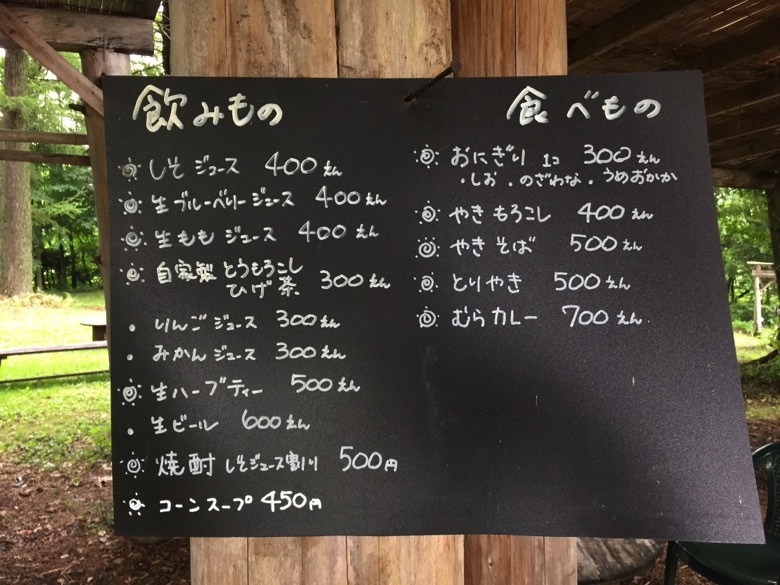 飲みもの
しそジュース 400えん
生ブルーベリージュース 400えん
生ももジュース 400えん
自家製とうもろこし
ひげ茶 300えん
・りんごジュース 300えん
・みかんジュース 300えん
生ハーブティー 500えん
・生ビール 600えん
焼酎 しそジュース割り 500円
コーンスープ 450円
食べもの
おにぎり 1コ 300えん
・しお ・のざわな ・うめおかか
やきもろこし 400えん
やきそば 500えん
とりやき 500えん
むらカレー 700えん